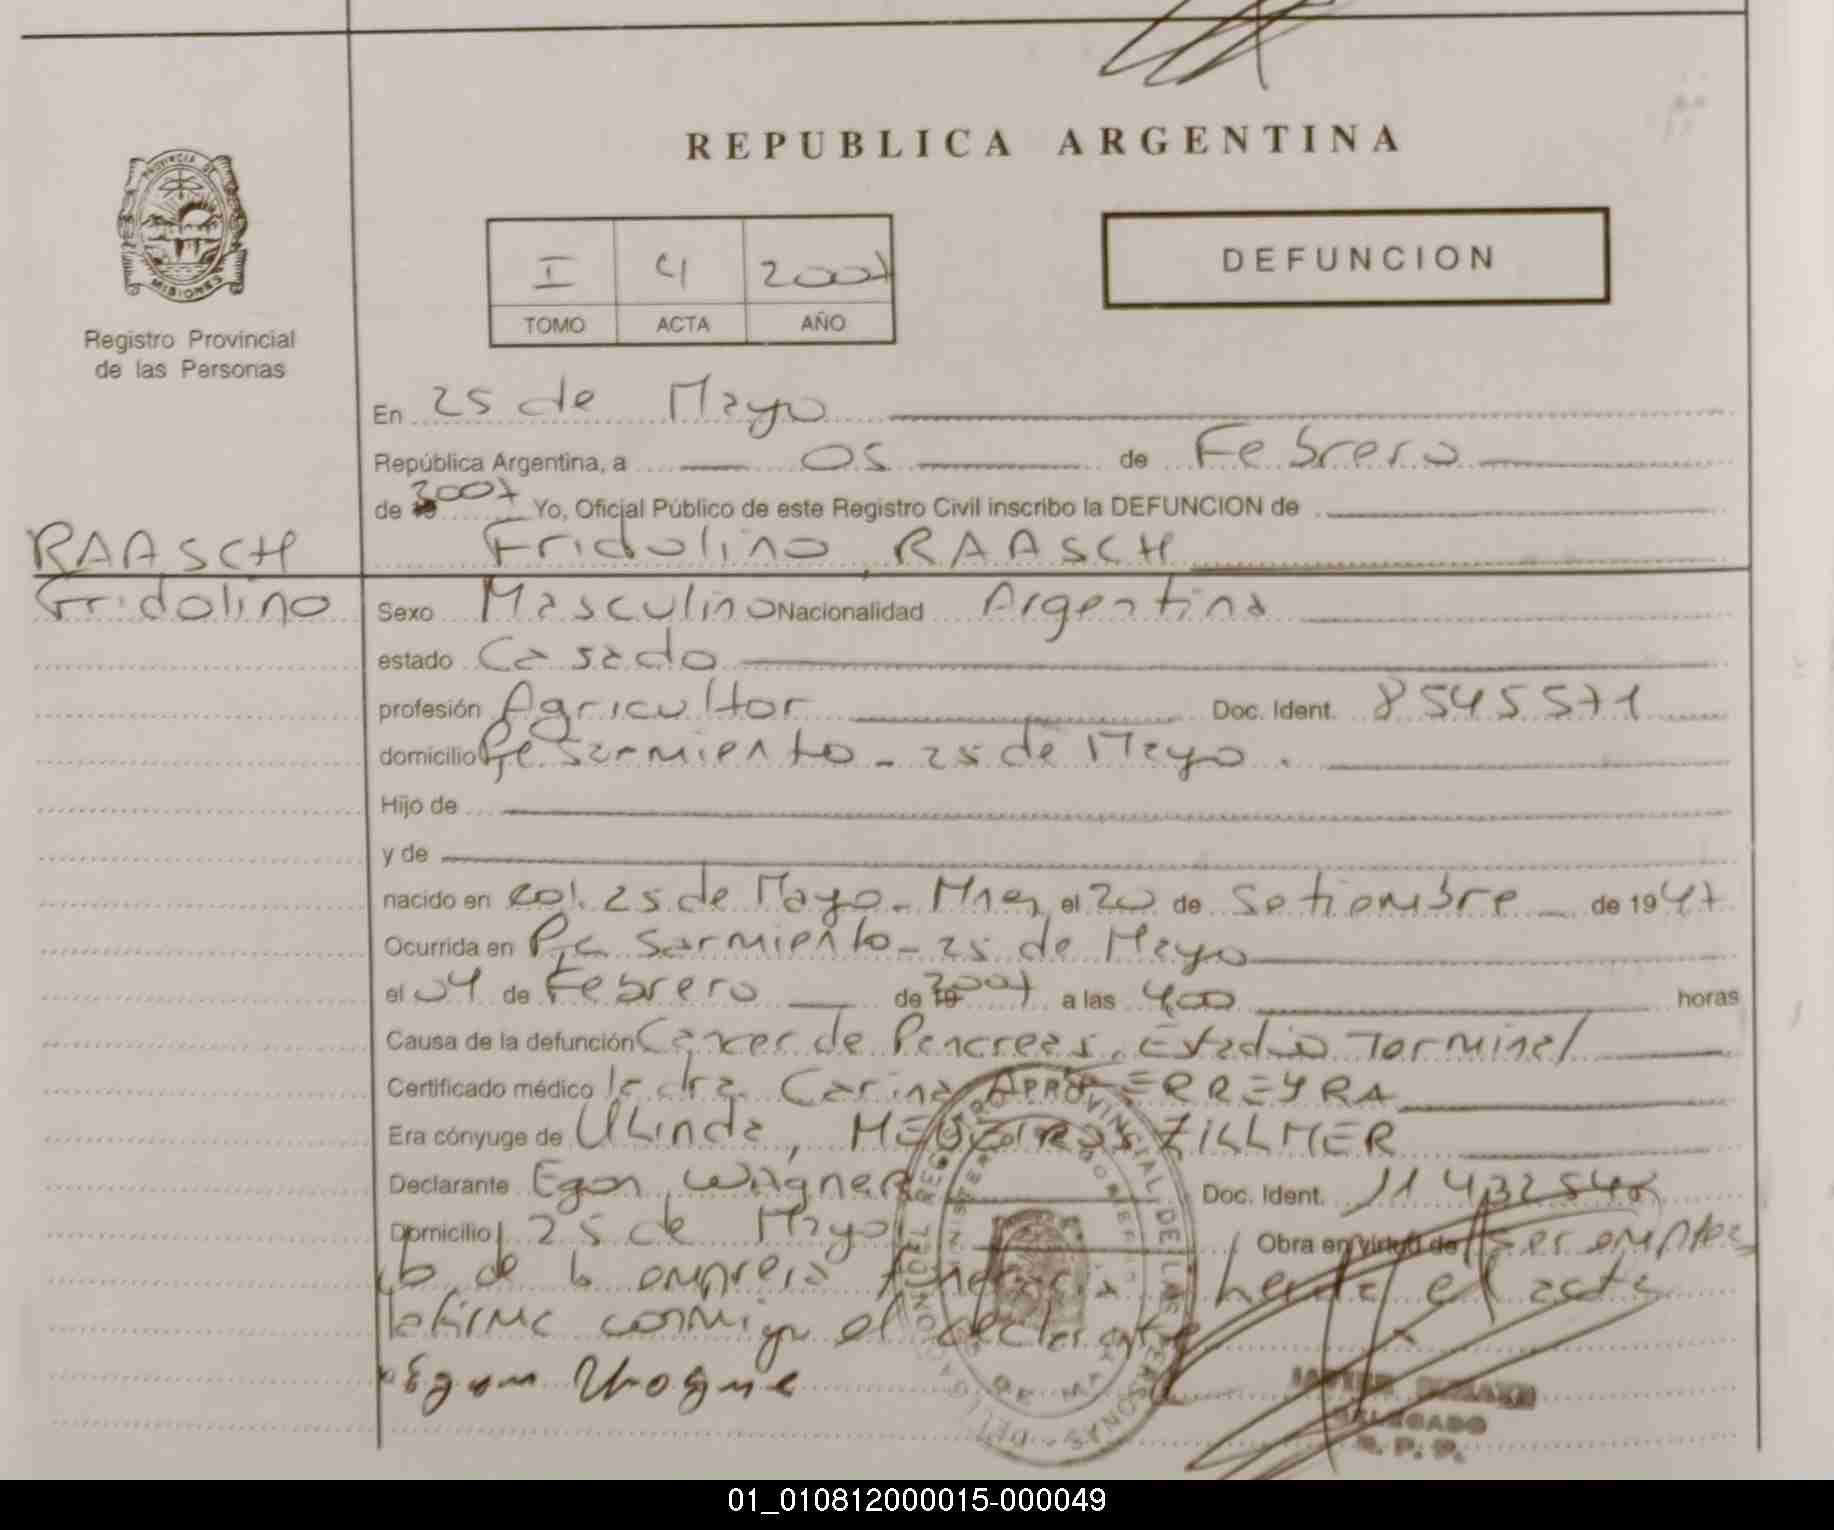 REPUBLICA ARGENTINA
PROVINCIA DE
MISIONES
Registro Provincial
de las Personas
I 4 2007
TOMO ACTA AÑO
DEFUNCION
En 25 de Mayo
República Argentina, a 05 de Febrero
de 2007 Yo, Oficial Público de este Registro Civil inscribo la DEFUNCION de
RAASCH
Fridolino RAASCH
Fridolino
Sexo Masculino Nacionalidad Argentina
estado Casado
profesión Agricultor Doc. Ident. 8545571
domicilio Pje Sarmiento - 25 de Mayo.
Hijo de
y de
nacido en Col. 25 de Mayo - Mnes el 20 de Setiembre de 1947
Ocurrida en Pje Sarmiento - 25 de Mayo
el 04 de Febrero de 2007 a las 4,00 horas
Causa de la defunción Cancer de Pancreas, Estadio Terminal
Certificado médico la dra. Carina FERREYRA
Era cónyuge de Ulinda, ZILLMER
Declarante Egon WAGNER Doc. Ident. 11 432
Domicilio 25 de Mayo Obra en virtud de ser emplea
do de la empresa funeraria leida el acta
la firma conmigo el declarante
Egon
DELEGADO
R. P. P.
01_010812000015-000049